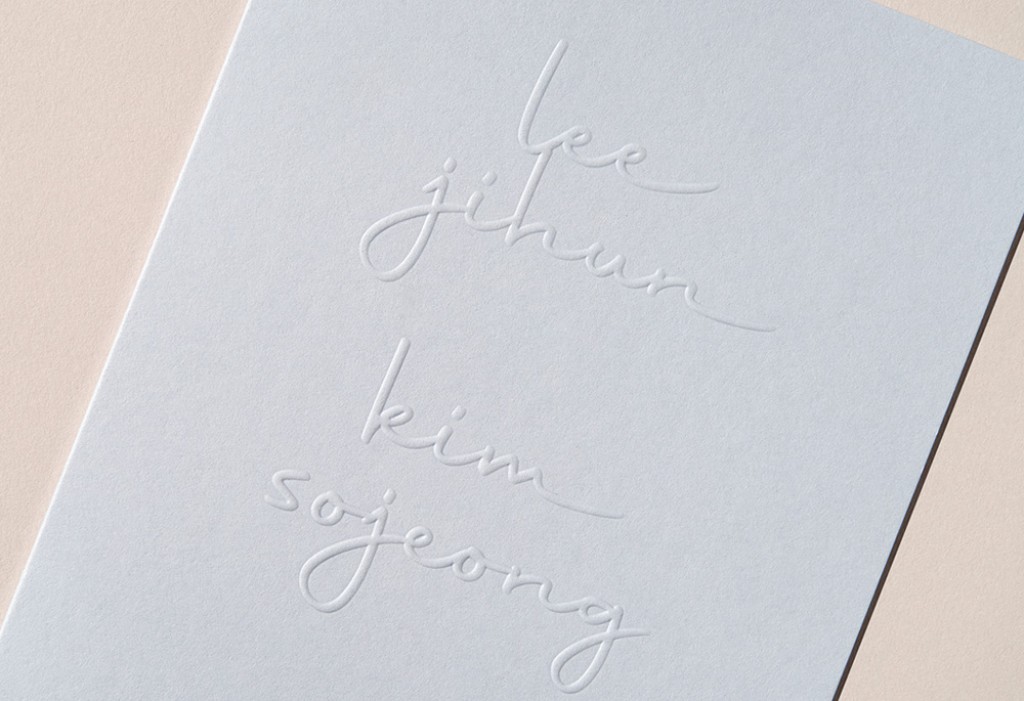 lee
jihun
kim
sojeong